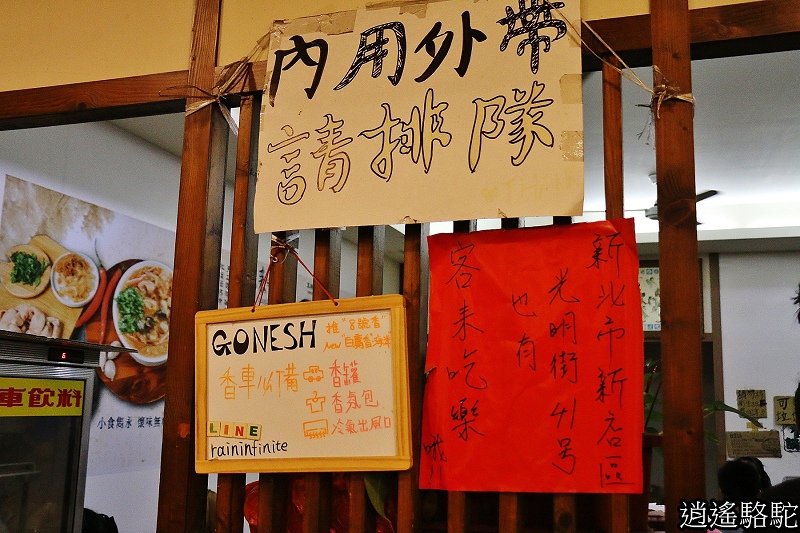 內用外帶
請排隊
GONESH
推"8號香"
香車必備
香罐
香氛包
冷氣出風口
LINE
raininfinite
新北市新店區
光明街41号
也有
客来吃樂
車飲料
逍遙駱駝